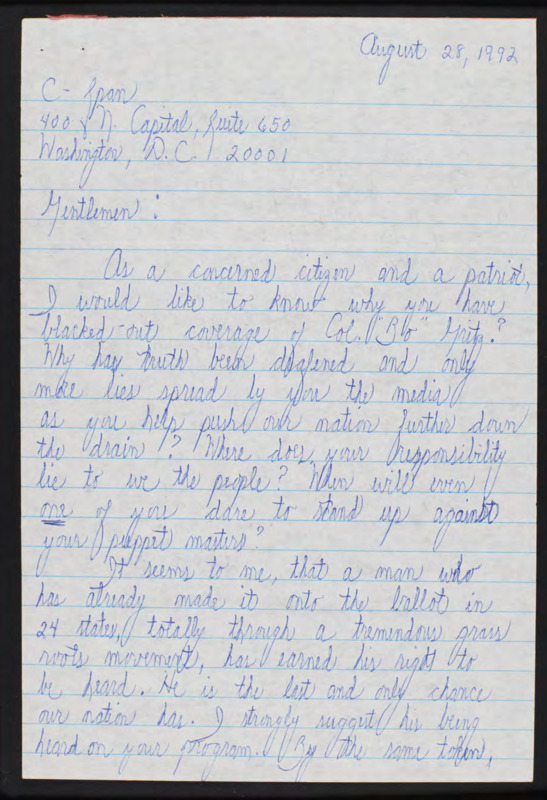 August 28, 1992
C-Span
400 N. Capital, Suite 650
Washington, D.C. 20001
Gentlemen:
As a concerned citizen and a patriot,
I would like to know why you have
blacked-out coverage of Col. "Bo" Gritz?
Why has truth been and only
more lies spread by you the media
as you help push our nation further down
the drain? Where does your responsibility
lie to we the people? When will even
one of you dare to stand up against
your puppet masters?
It seems to me, that a man who
has already made it onto the ballot in
24 states, totally through a tremendous grass
roots movement, has earned his right to
be heard. He is the last and only chance
our nation has. I strongly suggest his being
heard on your program. By the same token,